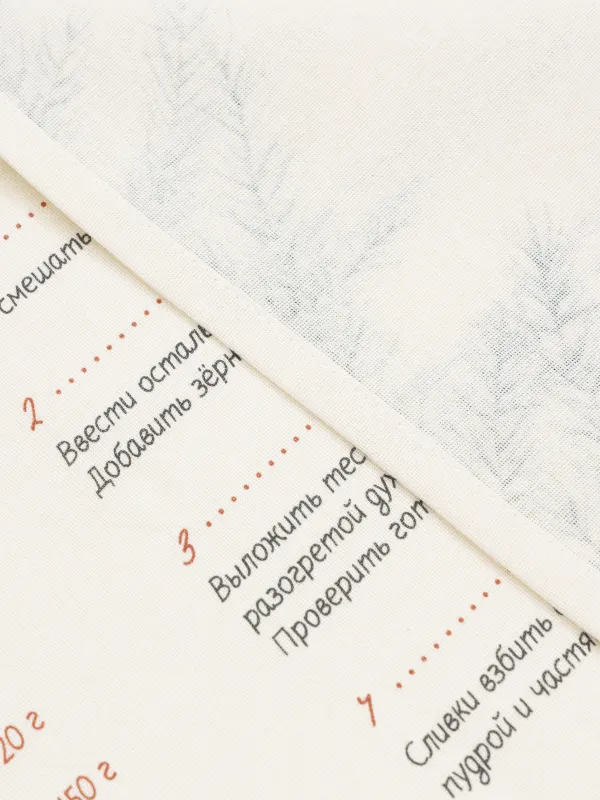 смешать
2
Ввести осталь
Добавить зёрн
3
Выложить тес
разогретой дух
Проверить гот
4
Сливки взбить
пудрой и частя
20 г
50 г